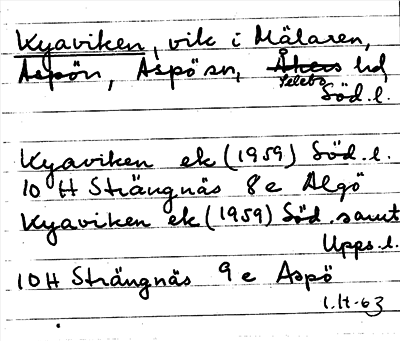 Kyaviken, vik i Mälaren,
Aspön, Aspö sn, Åkers hd,
Selebo
Söd. l.
Kyaviken ek (1959) Söd. l.
10 H Strängnäs 8 e Algö
Kyaviken ek (1959) Söd. samt
Upps. l.
10 H Strängnäs 9 e Aspö
1.H-63